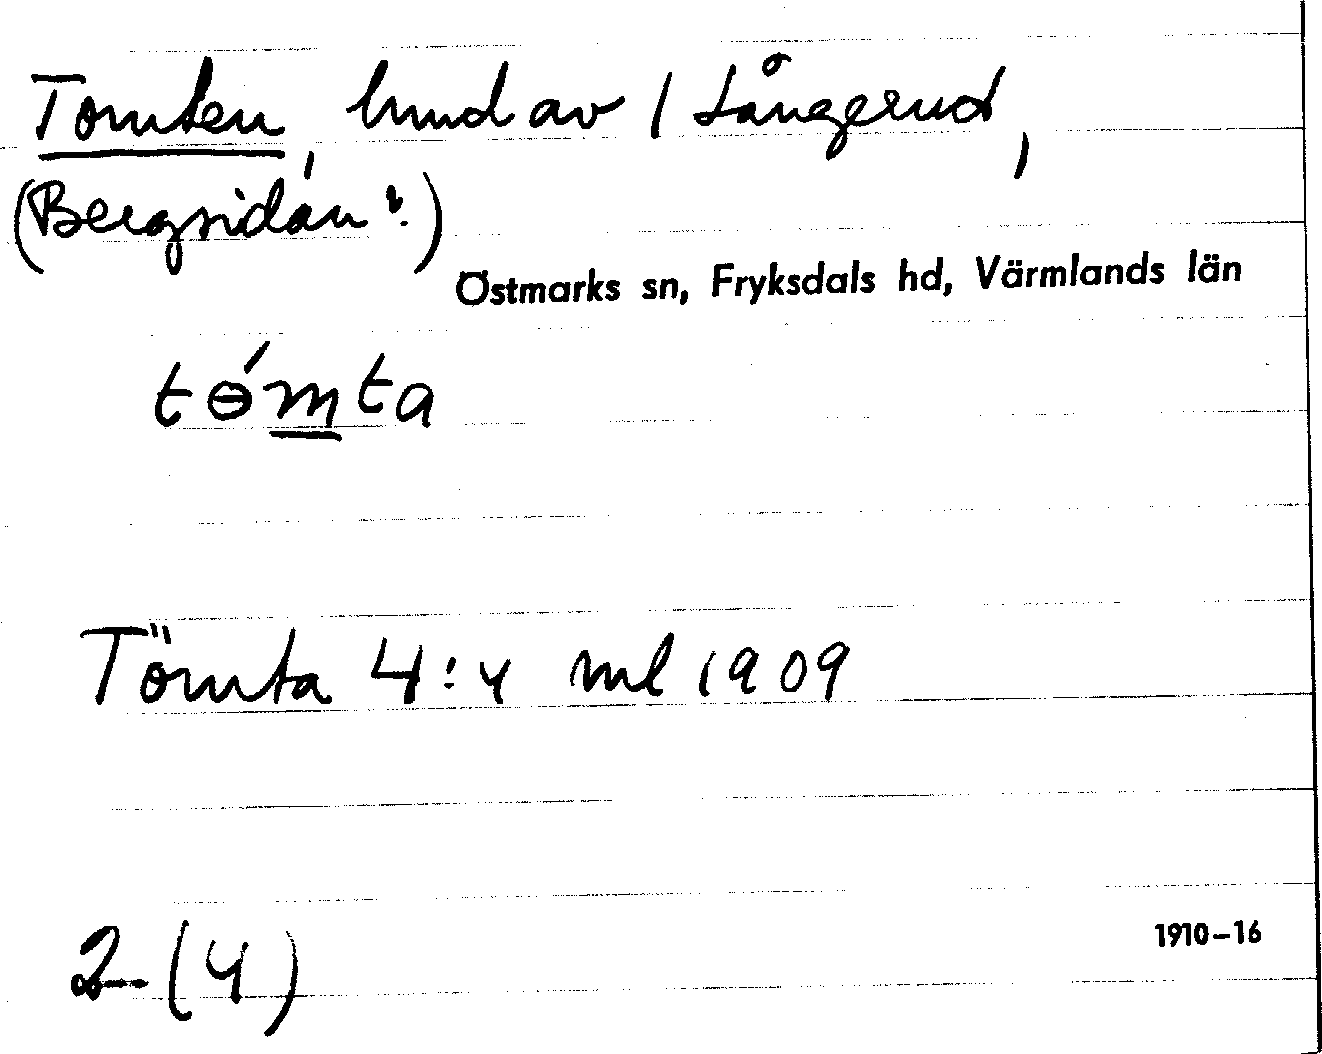 Tomten, hmd av 1 Långerud,
(Bergsidan?)
Östmarks sn, Fryksdals hd, Värmlands län
tɵ́mta
Tömta 4:4 ml 1909
1910–16
2 (4)